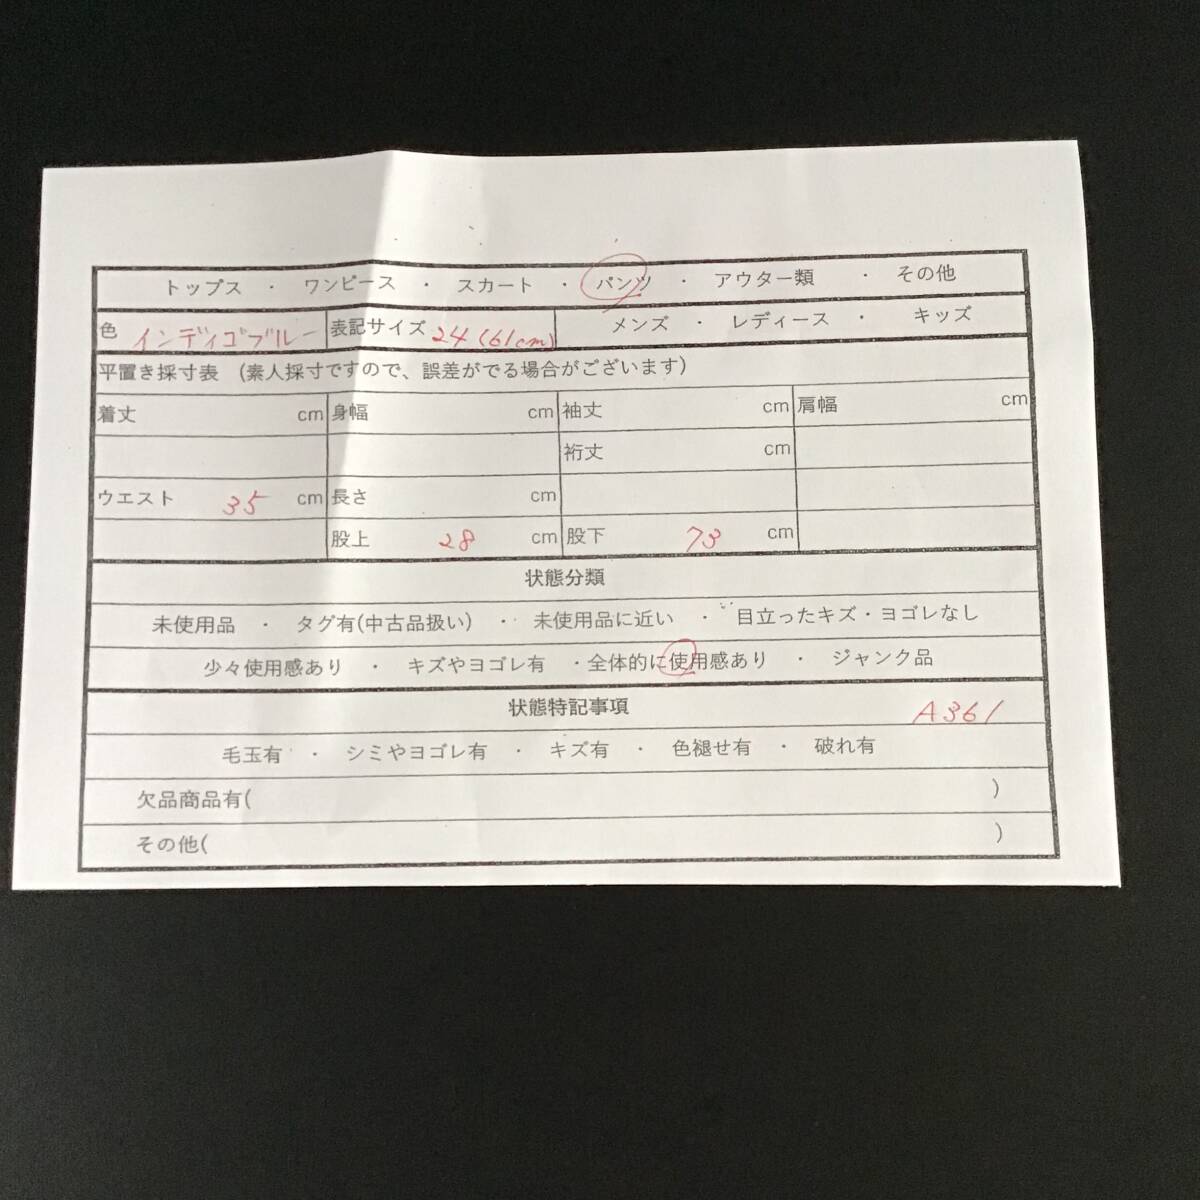 トップス ・ ワンピース ・ スカート ・ パンツ ・ アウター類 ・ その他
色 インディゴブルー 表記サイズ 24(61cm) メンズ ・ レディース ・ キッズ
平置き採寸表 (素人採寸ですので、誤差がでる場合がございます)
着丈 cm 身幅 cm 袖丈 cm 肩幅 cm
裄丈 cm
ウエスト 35 cm 長さ cm
股上 28 cm 股下 73 cm
状態分類
未使用品 ・ タグ有(中古品扱い) ・ 未使用品に近い ・ 目立ったキズ・ヨゴレなし
少々使用感あり ・ キズやヨゴレ有 ・全体的に使用感あり ・ ジャンク品
状態特記事項 A361
毛玉有 ・ シミやヨゴレ有 ・ キズ有 ・ 色褪せ有 ・ 破れ有
欠品商品有( )
その他( )